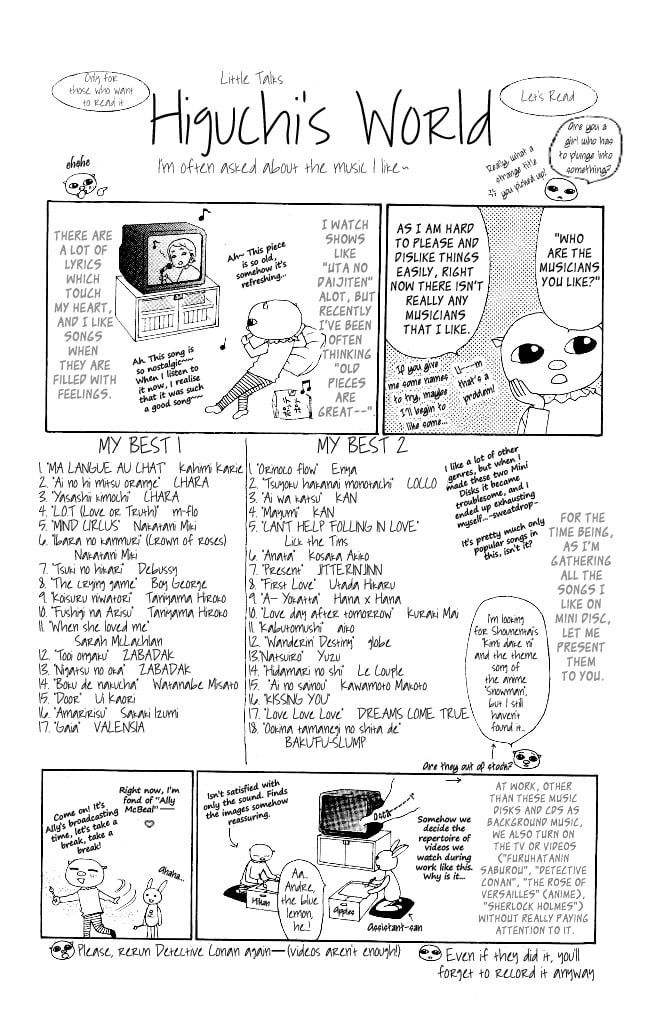 Only for
those who want
to read it
Little Talks
Let's Read
Higuchi's World
I'm often asked about the music I like~
ehehe
Really, what a
strange title
you picked up!
Are you a
girl who has
to plunge into
something?
"WHO
ARE THE
MUSICIANS
YOU LIKE?"
AS I AM HARD
TO PLEASE AND
DISLIKE THINGS
EASILY, RIGHT
NOW THERE ISN'T
REALLY ANY
MUSICIANS
THAT I LIKE.
U---m
that's a
problem!
If you give
me some names
to try, maybe
I'll begin to
like some...
I WATCH
SHOWS
LIKE
"UTA NO
DAIJITEN"
ALOT, BUT
RECENTLY
I'VE BEEN
OFTEN
THINKING
"OLD
PIECES
ARE
GREAT--".
Ah~ This piece
is so old,
somehow it's
refreshing...
Ah. This song is
so nostalgic~~
When I listen to
it now, I realise
that it was such
a good song~~
THERE ARE
A LOT OF
LYRICS
WHICH
TOUCH
MY HEART,
AND I LIKE
SONGS
WHEN
THEY ARE
FILLED WITH
FEELINGS.
MY BEST 1
1. "MA LANGUE AU CHAT" Kahimi Karie
2. "Ai no hi mitsu orange" CHARA
3. "Yasashii kimochi" CHARA
4. "L.O.T (Love or Truth)" m-flo
5. "MIND CIRCUS" Nakatani Miki
6. "Ibara no kanmuri" (Crown of roses)
Nakatani Miki
7. "Tsuki no hikari" Debussy
8. "The crying game" Boy George
9. "Koisuru niwatori" Taniyama Hiroko
10. "Fushigi na Arisu" Taniyama Hiroko
11. "When she loved me"
Sarah McLachlan
12. "Tooi ongaku" ZABADAK
13. "Ngatsu no oka" ZABADAK
14. "Boku de nakucha" Watanabe Misato
15. "Door" Ui Kaori
16. "Amaririsu" Sakaki Izumi
17. "Gaia" VALENSIA
MY BEST 2
1. "Orinoco flow" Enya
2. "Tsuyoku hakanai monotachi" COCCO
3. "Ai wa katsu" KAN
4. "Mayumi" KAN
5. "CAN'T HELP FOLLING IN LOVE"
Lick the Tins
6. "Anata" Kosaka Akiko
7. "Present" JITTERINJINN
8. "First Love" Utada Hikaru
9. "A- Yokatta" Hana x Hana
10. "Love day after tomorrow" Kuraki Mai
11. "Kabutomushi" aiko
12. "Wanderin' Destiny" globe
13. "Natsuiro" Yuzu
14. "Hidamari no shi" Le Couple
15. "Ai no sainou" Kawamoto Makoto
16. "KISSING YOU"
17. "Love Love Love" DREAMS COME TRUE
18. "Ookina tamanegi no shita de"
BAKUFU-SLUMP
I like a lot of other
genres, but when I
made these two Mini
Disks it became
troublesome, and I
ended up exhausting
myself...~sweatdrop~
It's pretty much only
popular songs in
this, isn't it?
FOR THE
TIME BEING,
AS I'M
GATHERING
ALL THE
SONGS I
LIKE ON
MINI DISC,
LET ME
PRESENT
THEM
TO YOU.
I'm looking
for Shounentai's
"Kimi dake ni"
and the theme
song of
the anime
"Snowman",
but I still
haven't
found it..
Are they out of stock?
Right now, I'm
fond of "Ally
McBeal"——
Come on! It's
Ally's broadcasting
time, let's take a
break, take a
break!
Ahaha...
Isn't satisfied with
only the sound. Finds
the images somehow
reassuring.
Mikan
Aa...
Andre,
the blue
lemon,
he...!
Apples
Assistant-san
Somehow we
decide the
repertoire of
videos we
watch during
work like this.
Why is it...
AT WORK, OTHER
THAN THESE MUSIC
DISKS AND CDS AS
BACKGROUND MUSIC,
WE ALSO TURN ON
THE TV OR VIDEOS
("FURUHATANIN
SABUROU", "DETECTIVE
CONAN", "THE ROSE OF
VERSAILLES" (ANIME),
"SHERLOCK HOLMES")
WITHOUT REALLY PAYING
ATTENTION TO IT.
Please, rerun Detective Conan again— (videos aren't enough!)
Even if they did it, you'll
forget to record it anyway